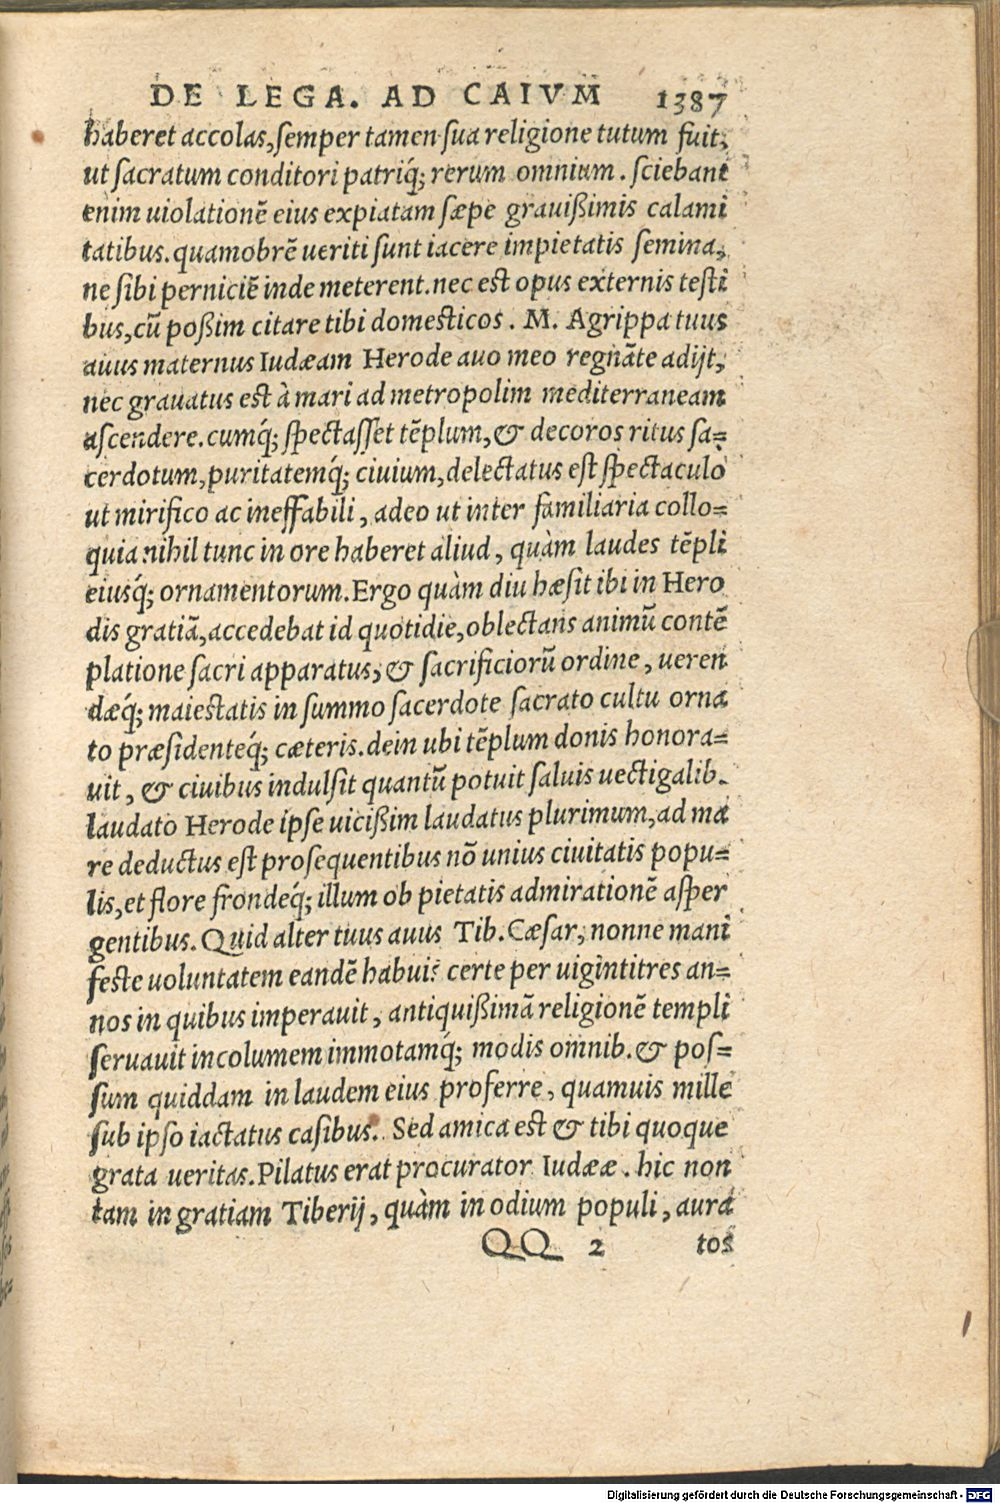 DE LEGA. AD CAIVM 1387
haberet accolas, semper tamen sua religione tutum fuit,
ut sacratum conditori patriq́; rerum omnium. sciebant
enim uiolationẽ eius expiatam sæpe grauißimis calami
tatibus. quamobrẽ ueriti sunt iacere impietatis semina,
ne sibi perniciẽ inde meterent. nec est opus externis testi
bus, cũ poßim citare tibi domesticos. M. Agrippa tuus
auus maternus Iudæam Herode auo meo regnãte adijt,
nec grauatus est à mari ad metropolim mediterraneam
ascendere. cumq́; spectasset tẽplum, & decoros ritus sa=
cerdotum, puritatemq́; ciuium, delectatus est spectaculo
ut mirifico ac ineffabili, adeo ut inter familiaria collo=
quia nihil tunc in ore haberet aliud, quàm laudes tẽpli
eiusq́; ornamentorum. Ergo quàm diu hæsit ibi in Hero
dis gratiã, accedebat id quotidie, oblectans animũ contẽ
platione sacri apparatus, & sacrificiorũ ordine, ueren
dæq́; maiestatis in summo sacerdote sacrato cultu orna
to præsidenteq́; cæteris. dein ubi tẽplum donis honora=
uit, & ciuibus indulsit quantũ potuit saluis uectigalib.
laudato Herode ipse uicißim laudatus plurimum, ad ma
re deductus est prosequentibus nõ unius ciuitatis popu=
lis, et flore frondeq́; illum ob pietatis admirationẽ asper
gentibus. Quid alter tuus auus Tib. Cæsar, nonne mani
feste uoluntatem eandẽ habuit? certe per uigintitres an=
nos in quibus imperauit, antiquißimã religionẽ templi
seruauit incolumem immotamq́; modis omnib. & pos=
sum quiddam in laudem eius proferre, quamuis mille
sub ipso iactatus casibus. Sed amica est & tibi quoque
grata ueritas. Pilatus erat procurator Iudææ. hic non
tam in gratiam Tiberij, quàm in odium populi, aura
QQ 2 tos
Digitalisierung gefördert durch die Deutsche Forschungsgemeinschaft - DFG